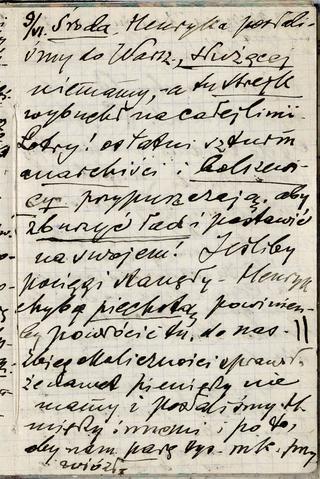 9/VI. Środa. Henryka posłali-
śmy do Warsz., służącej
niemamy, - a tu strejk
wybuchł na całej linii.
Łotry! ostatni szturm
anarchiści i bolszewi-
cy przypuszczają, aby
zburzyć ład i postawić
na swojem! Jeśliby
pociągi stanęły - Henryk
chyba piechotą powinien-
by powrócić tu, do nas -
zbieg okoliczności sprawił,
że nawet pieniędzy nie
mamy i posłaliśmy H.
między innemi i po to,
aby nam parę tys. mk. przy
wiózł.